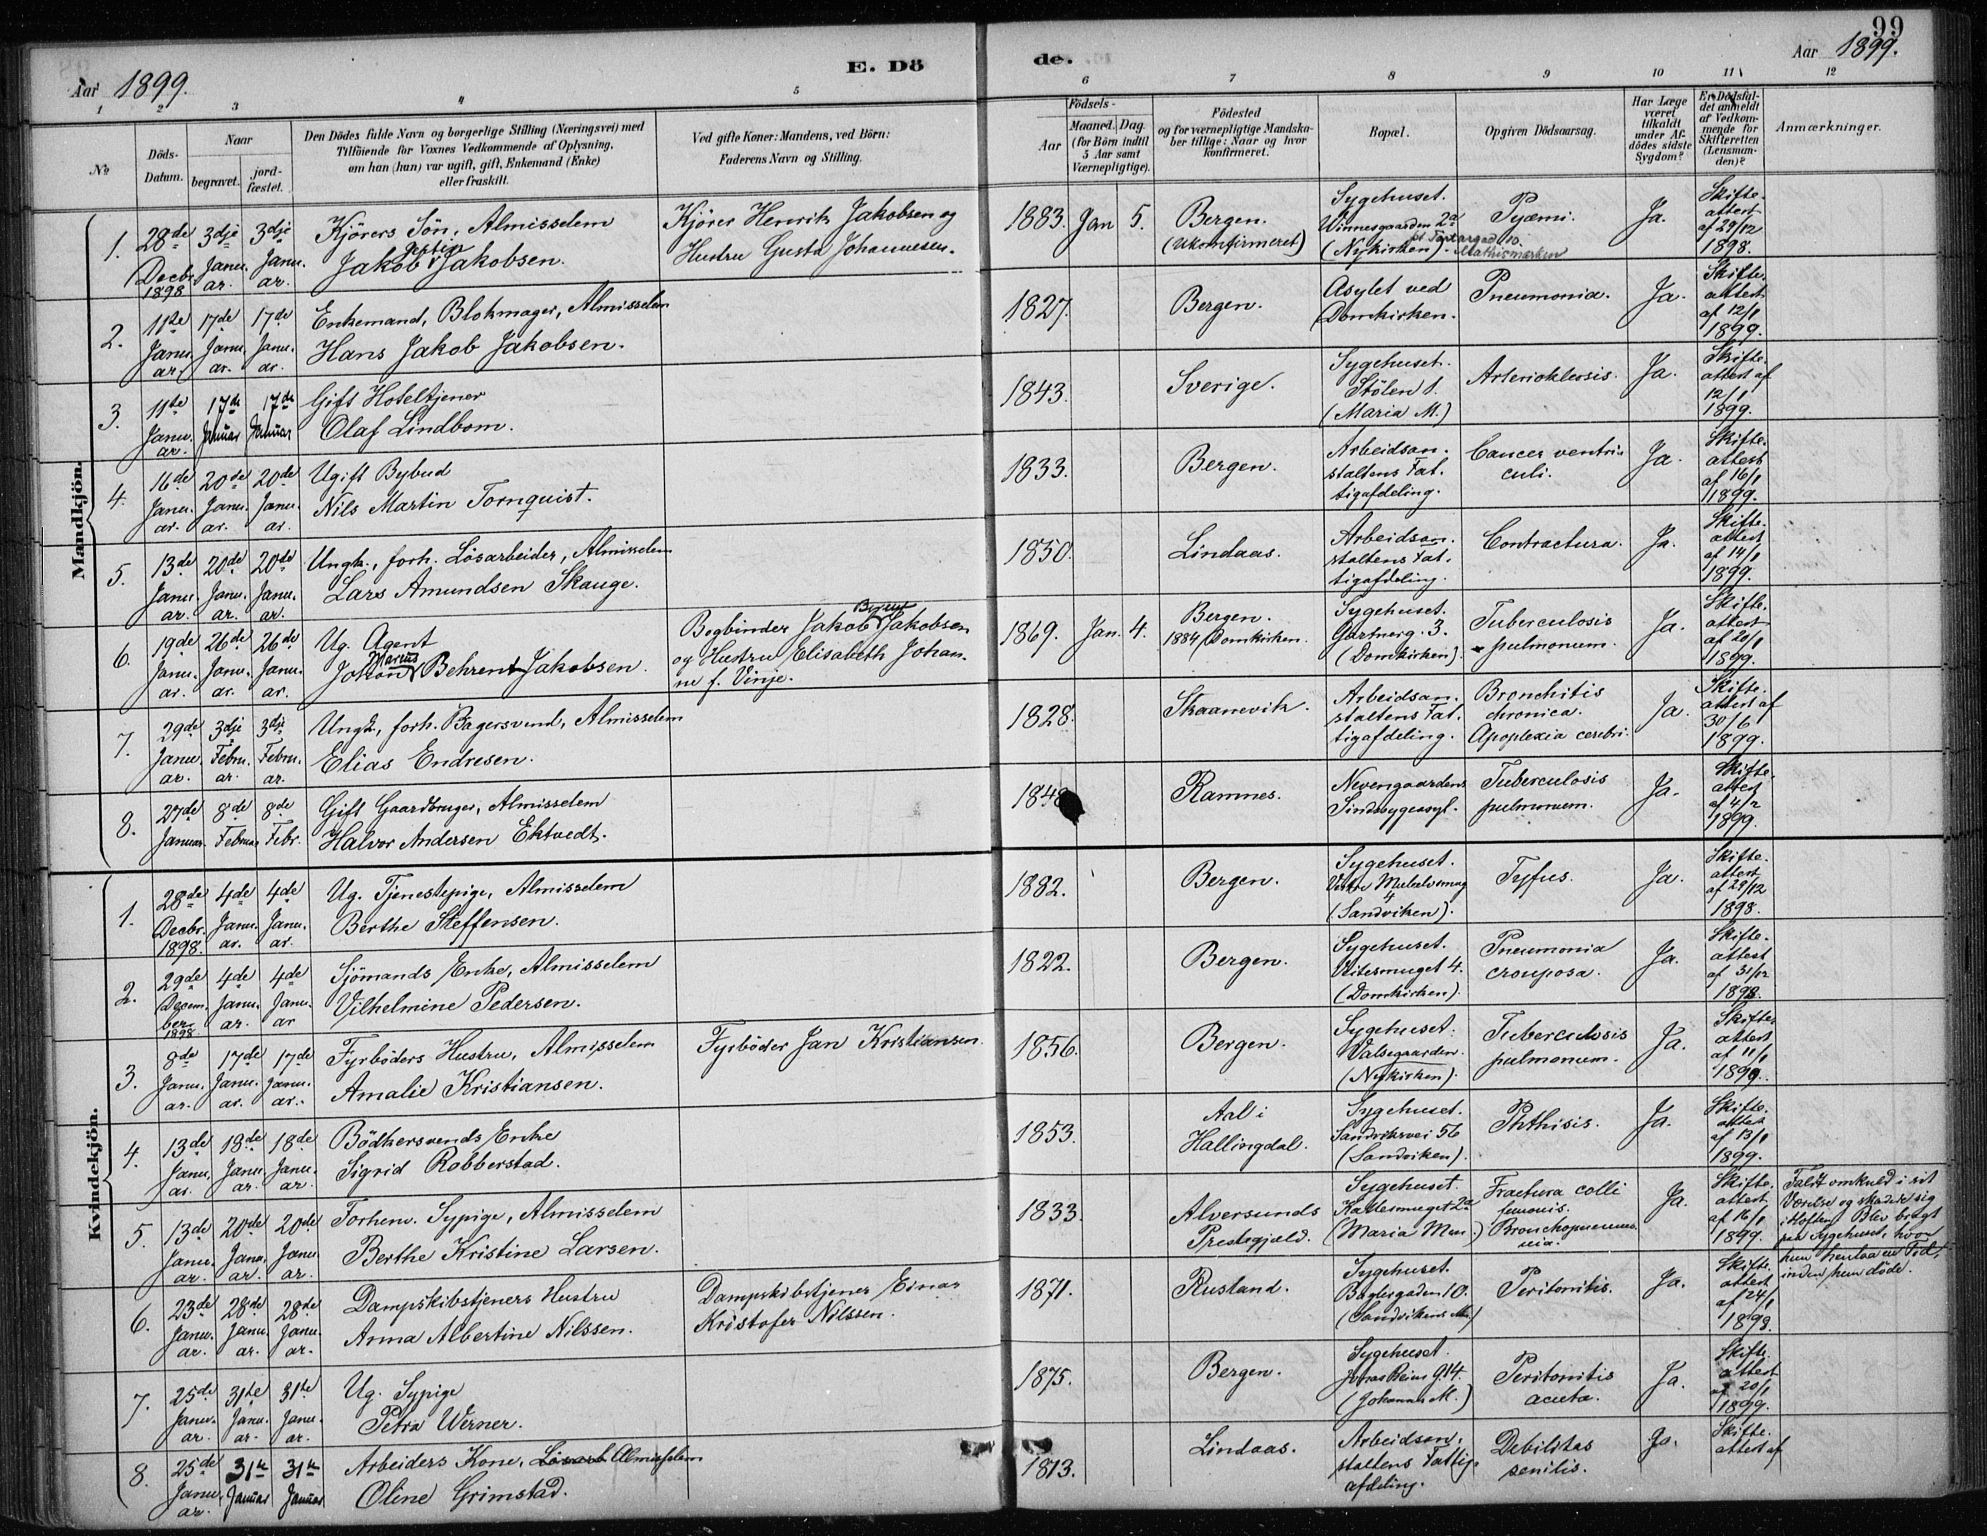 99
Aar 1899.
E. Dö
de.
Aar 1899.
1 2 3 4 5 6 7 8 9 10 11 12
No
Döds-Datum.
Naar begravet. jordfæstet.
Den Dödes fulde Navn og borgerlige Stilling (Næringsvei) med
Tilföiende for Voxnes Vedkommende af Oplysning,
om han (hun) var ugift, gift, Enkemand (Enke)
eller fraskilt.
Ved gifte Koner: Mandens, ved Börn:
Faderens Navn og Stilling.
Födsels-
Aar
Maaned. Dag.
(for Börn indtil
5 Aar samt
Værnepligtige).
Födested
og for værnepligtige Mandskaber tillige: Naar og hvor
konfirmeret.
Bopæl.
Opgiven Dödsaarsag.
Har Læge
været
tilkaldt
under Afdödes sidste
Sygdom?
Er Dödsfaldet anmeldt
af Vedkommende for
Skifteretten
(Lensmanden)?
Anmærkninger.
Mandkjön.
1. 28de Decbr. 1898 3dje Januar. 3dje Januar. Kjörers Sön, Almisselem
Jakob Jakobsen.
Kjörer Henrik Jakobsen og
Hustru Gusta Johannesen.
1883. Jan 5. Bergen. (ukonfirmeret) Sygehuset. Winnesgaarden 2a (Nykirken) Pyæmi. Ja. Skifteattest af 29/12 1898.
2. 11te Januar 17de Januar. 17de Januar. Enkemand, Blokmager, Almisselem
Hans Jakob Jakobsen.
1827. Bergen. Asylet ved Domkirken. Pneumonia. Ja. Skifteattest af 12/1 1899.
3. 11te Januar. 17de Januar 17de Januar Gift Hoteltjener
Olaf Lindbom.
1843. Sverige. Sygehuset. Stölen 1. (Maria M.) Arterioklerosis. Ja. Skifteattest af 12/1 1899.
4. 16de Januar. 20de Januar. 20de Januar. Ugift Bybud
Nils Martin Tornquist.
1833. Bergen. Arbeidsanstaltens Fattigafdeling. Cancer ventriculi. Ja. Skifteattest af 16/1 1899.
5. 13de Januar. 20de Januar. 20de Januar. Ungk., forh. Lösarbeider, Almisselem
Lars Amundsen Skauge.
1850. Lindaas. Arbeidsanstaltens Fattigafdeling. Contractura. Ja. Skifteattest af 14/1 1899.
6. 19de Januar. 26de Januar. 26de Januar. Ug. Agent
Johan Marcus Behrent Jakobsen.
Bogbinder Jakob Berent Jakobsen
og Hustru Elisabeth Johanne f. Vinje.
1869. Jan. 4. Bergen. 1884 Domkirken. Sygehuset. Gartnerg. 3. (Domkirken). Tuberculosis pulmonum. Ja. Skifteattest af 20/1 1899.
7. 29de Januar. 3dje Februar. 3dje Februar. Ungk., forh. Bagersvend, Almisselem
Elias Endresen.
1828. Skaanevik. Arbeidsanstaltens Fattigafdeling. Bronchitis chronica. Apoplexia cerebri. Ja. Skifteattest af 30/6 1899.
8. 27de Januar. 8de Februar 8de Febr. Gift Gaardbruger, Almisselem
Halvor Andersen Ektvedt.
1848 Ramnes. Nevengaardens Sindssygeasyl. Tuberculosis pulmonum. Ja. Skifteattest af 4/2 1899.
Kvindekjön.
1. 28de Decbr. 1898. 4de Januar. 4de Januar. Ug. Tjenestepige, Almisselem
Berthe Steffensen.
1882. Bergen. Sygehuset. 4 (Sandviken). Tyfus. Ja. Skifteattest af 29/12 1898.
2. 29de December 1898 4de Januar. 4de Januar Sjömands Enke, Almisselem
Vilhelmine Pedersen.
1822. Bergen. Sygehuset. 4. (Domkirken). Pneumonia crouposa. Ja. Skifteattest af 31/12 1898.
3. 8de Januar. 17de Januar. 17de Januar. Fyrböders Hustru, Almisselem
Amalie Kristiansen.
Fyrböder Jan Kristiansen.
1856. Bergen. Sygehuset. Valsegaarden. (Nykirken). Tuberculosis pulmonum. Ja. Skifteattest af 11/1 1899.
4. 13de Januar. 18de Januar. 18de Januar Bödkersvends Enke
Sigrid Robberstad.
1853. Aal i Hallingdal. Sygehuset. Sandviksvei 56 (Sandviken). Phthisis. Ja. Skifteattest af 13/1 1899.
5. 13de Januar. 20de Januar. 20de Januar. Forhenv. Sypige, Almisselem
Berthe Kristine Larsen.
1833. Alversunds Prestegjæld. Sygehuset. Kattesmuget 2a (Maria Men.) Fractura colli femoris. Bronchopneumonia. Ja. Skifteattest af 16/1 1899. Faldt omkuld i sit
Værelse og skadede sig
i Hoften. Blev bragt
paa Sygehuset, hvor
hun henlaa en Tid,
inden hun döde.
6. 23de Januar. 28de Januar. 28de Januar. Dampskibstjeners Hustru
Anna Albertine Nilssen.
Dampskibstjener Einar
Kristofer Nilssen.
1871. Rustand. Sygehuset. Baglergaden 10. (Sandvikens M.) Peritonitis. Ja. Skifteattest af 24/1 1899.
7. 25de Januar. 31te Januar. 31te Januar. Ug. Sypige
Petra Werner.
1875. Bergen. Sygehuset. Jonas Reins G. 14. (Johannes M.) Peritonitis acuta. Ja. Skifteattest af 20/1 1899.
8. 25de Januar. 31te Januar 31te Januar Arbeiders Kone, Almisselem
Oline Grimstad.
1813. Lindaas. Arbeidsanstaltens Fattigafdeling. Debilitas senilis. Ja. Skifteattest af